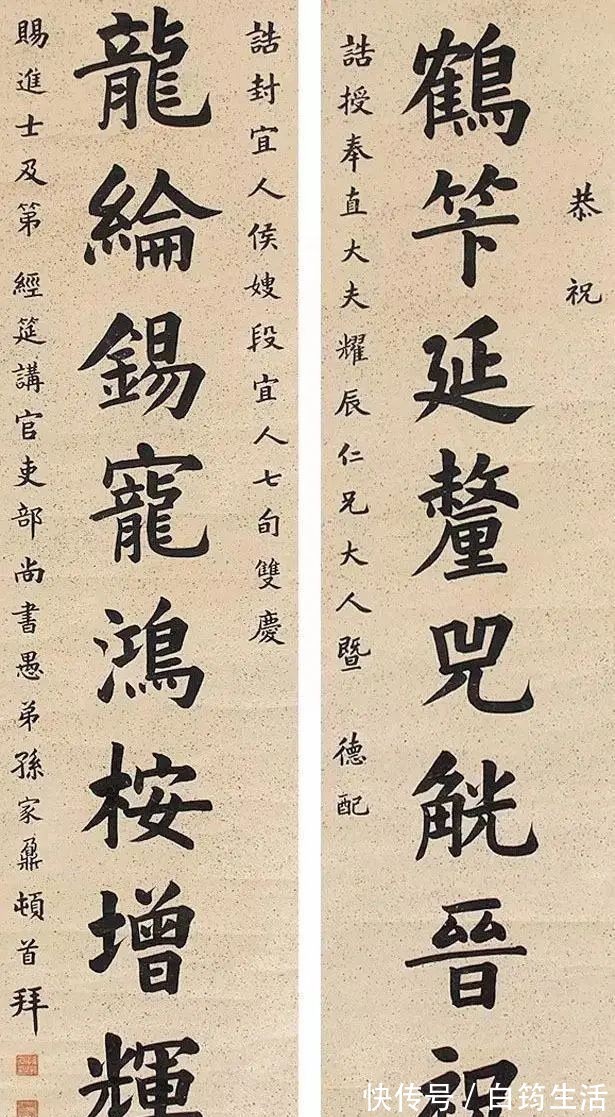 恭祝
鶴笇延釐兕觥晉祝
誥授奉直大夫耀辰仁兄大人暨 德配
誥封宜人侯嫂段宜人七旬雙慶
龍綸錫寵鴻桉增輝
賜進士及第 經筵講官吏部尚書愚弟孫家鼐頓首拜
快传号 / 白筠生活